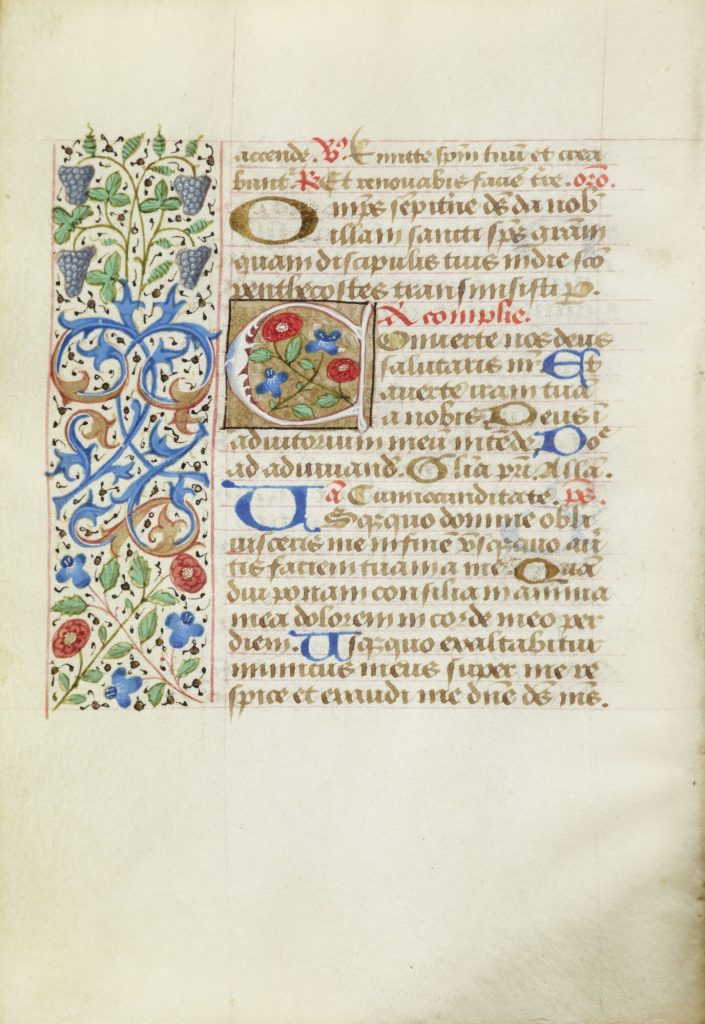 accende. V. Emitte spm tuū et crea
bunt. R. Et renovabis facie tre. oro.
Omps sepitne ds da nob
illam sancti sps gram
quam discipulis tuis in die sco
penthecostes transmisisti P.
A complie.
Converte nos deus
salutaris nr. Et
averte iram tuā
a nobis Deus i
adiutorium meū intede. Doe
ad adiuuand. Glia pri. Alla.
a Cumiocunditate. ps.
Usq̨quo domine obli
visceris me in fine usq̨quo aū
tis faciem tuam a me Quā
diu ponam consilia in anima
mea dolorem in corde meo per
diem. Usq̨quo exaltabitur
inimicus meus super me re
spice et exaudi me dne ds ms.